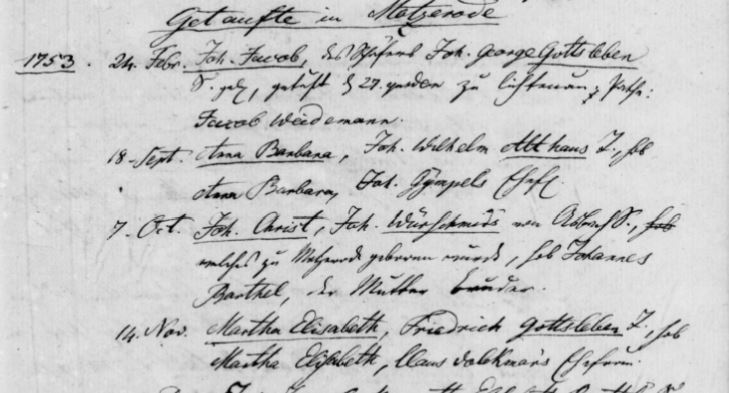 Getaufte in Metzerode
1753. 24. Febr. Joh. Jacob, des Schäfers Joh. George Gottsleben
S. geb, getauft d 27. zu Lichtenau, Pathe:
Jacob Weidemann.
18. Sept. Anna Barbara, Joh. Wilhelm Althaus T., hob
Anna Barbara, Joh. Gümpels Ehefr.
7. Oct. Joh. Christ, Joh. Würschmids von S.,
welches zu Metzerode geboren wurde, hob Johannes
Barthel, der Mutter bruder.
14. Nov. Martha Elisabeth, Friedrich Gottsleben T., hob
Martha Elisabeth, Claus Volckmars Ehefrau.